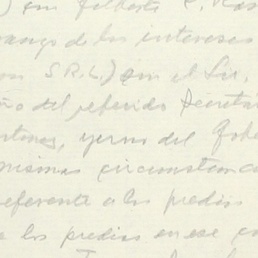 ) en Gilberto C. 
rango de los intereses
S.R.L.) en el Sr.
del referido Secreta
yerno del Gober
mismas circunstanc
referente a los predios
a los predios en ese